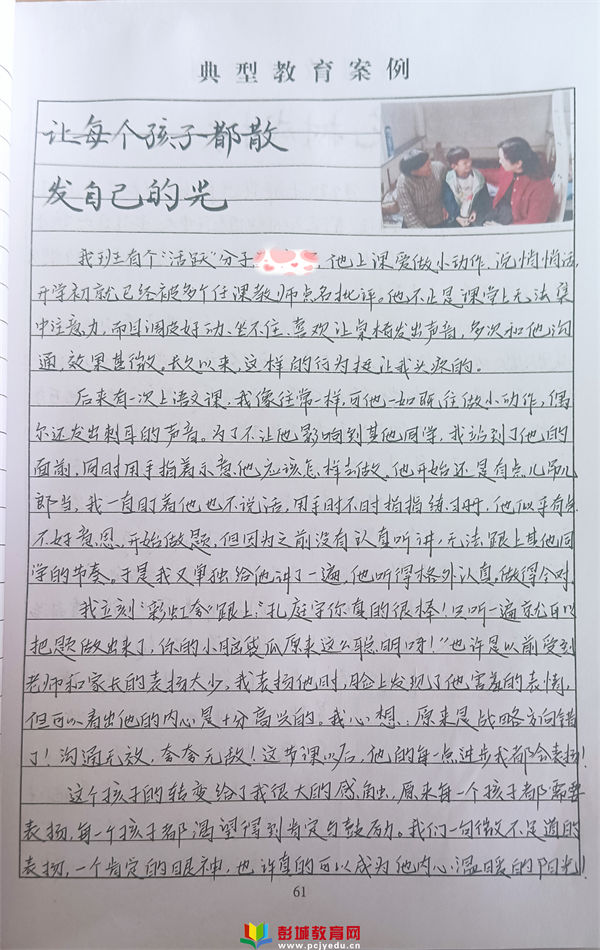 典型教育案例
让每个孩子都散
发自己的光
我班有个“活跃”分子，他上课爱做小动作，说悄悄话，
开学初就已经被多个任课教师点名批评。他不止是课堂上无法集
中注意力，而且调皮好动、坐不住、喜欢让桌椅发出声音，多次和他沟
通，效果甚微。长久以来，这样的行为挺让我头疼的。
后来有一次上语文课，我像往常一样，可他一如既往做小动作，偶
尔还发出刺耳的声音。为了不让他影响到其他同学，我站到了他的
面前，同时用手指着示意他应该怎样去做。他开始还是有点儿吊儿
郎当，我一直盯着他也不说话，用手时不时指指练习册，他似乎有些
不好意思，开始做题，但因为之前没有认真听讲，无法跟上其他同
学的节奏。于是我又单独给他讲了一遍，他听得格外认真，做得全对。
我立刻“彩虹夸”跟上：“孔庭宇你真的很棒！只听一遍就可以
把题做出来了，你的小脑袋瓜原来这么聪明呀！”也许是以前受到
老师和家长的表扬太少，我表扬他时，脸上发现了他害羞的表情，
但可以看出他的内心是十分高兴的。我心想：原来是战略方向错
了！沟通无效，夸夸无敌！这节课以后，他的每一点进步我都会表扬！
这个孩子的转变给了我很大的感触，原来每一个孩子都需要
表扬，每一个孩子都渴望得到肯定与鼓励。我们一句微不足道的
表扬，一个肯定的眼神，也许真的可以成为他内心温暖的阳光！
61
彭城教育网
www.pcjyedu.cn